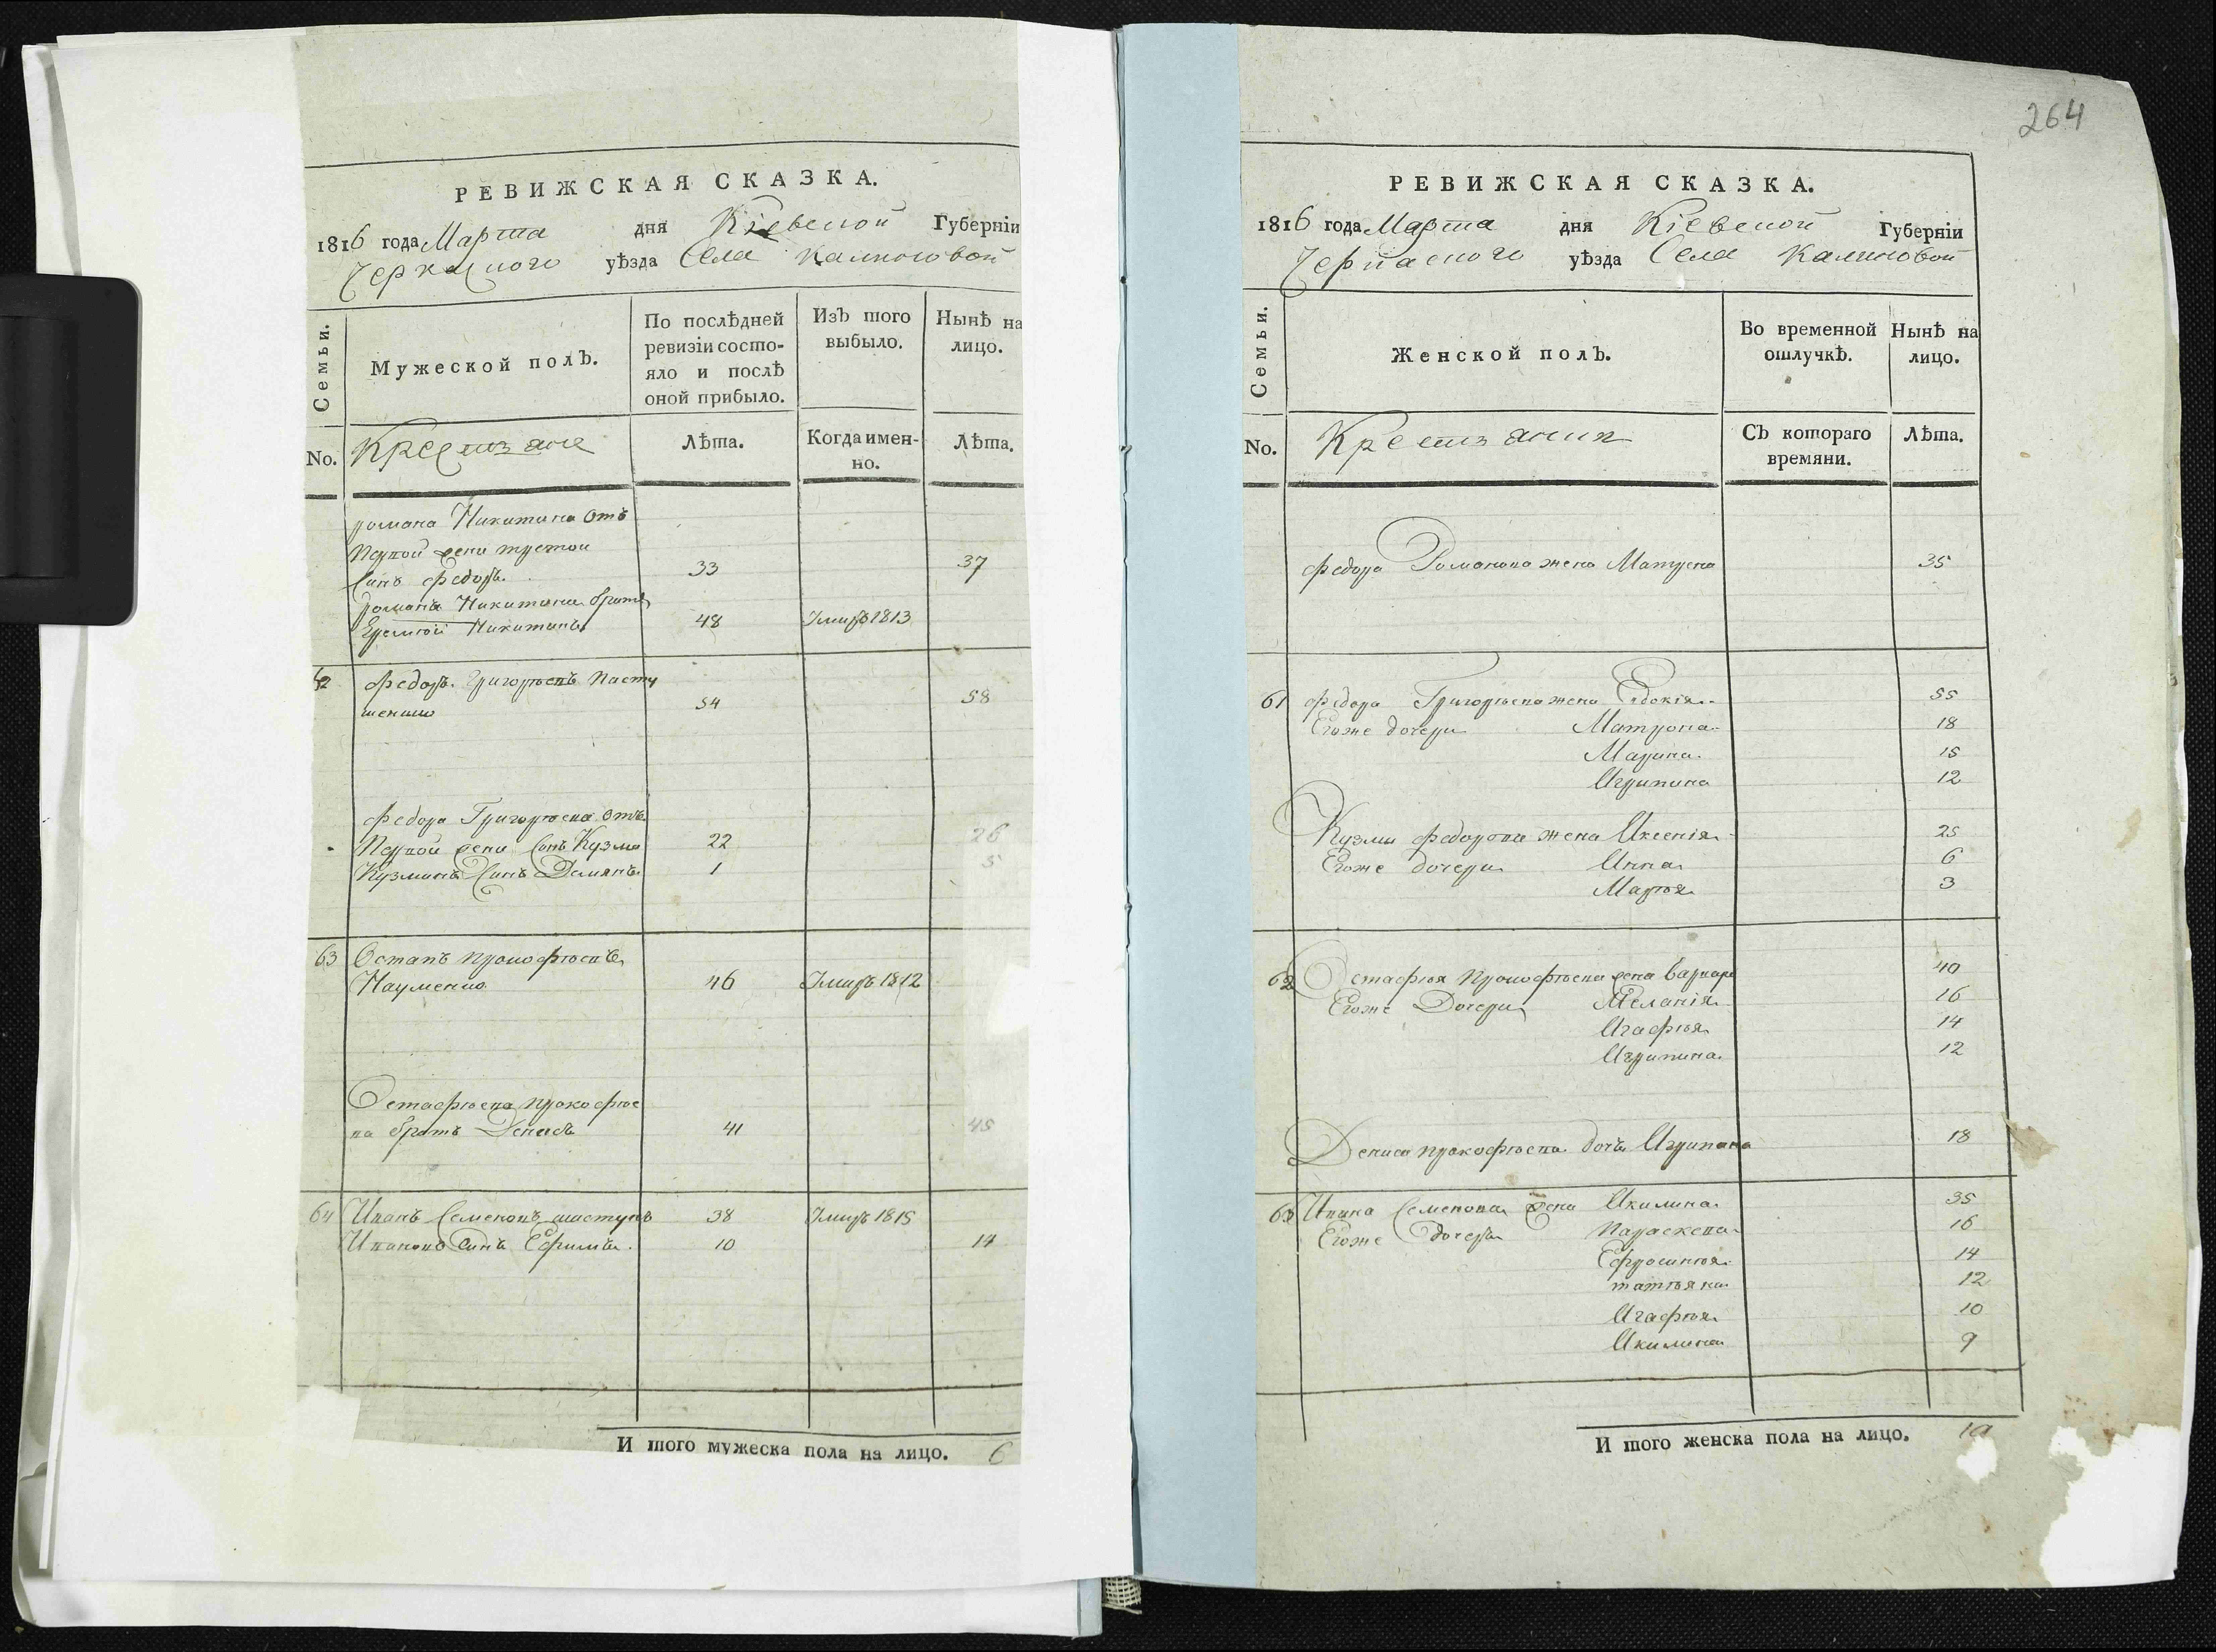 РЕВИЖСКАЯ СКАЗКА.
1816 года Марта дня Кіевской Губерніи
Черкаского уѣзда Села Калиновой
Семьи.
Мужеской полъ.
По послѣдней ревизіи состо-яло и послѣ оной прибыло.
Изъ того выбыло.
Нынѣ на лицо.
No.
Крестьяне
Лѣта.
Когда имен-но.
Лѣта.
романа Никитина отъ
первой жени третой
Синъ федоръ 33 37
романа Никитина братъ
Еремей Никитинъ 48 Умиръ 1813
62 федоръ Григорьевъ Пасту
шенко 54 58
федора Григорьева отъ
Первой жени Синъ Кузма 22 26
Кузминъ Синъ Демянъ 1 5
63 Остапъ прокофьевъ
Науменко 46 Умиръ 1812
Остафьева прокофье
ва братъ Денисъ 41 45
64 Иванъ Семеновъ шастунъ 38 Умиръ 1815
Ивановъ Синъ Ефимъ 10 14
И того мужеска пола на лицо. 6
264
РЕВИЖСКАЯ СКАЗКА.
1816 года Марта дня Кіевской Губерніи
Черкаского уѣзда Села Калиновой
Семьи.
Женской полъ.
Во временной отлучкѣ.
Нынѣ на лицо.
No.
Крестьянки
Съ котораго времяни.
Лѣта.
федора Романова жена Матрена 35
61 федора Григорьева жена Евдокія 55
Егоже дочери Матрона 18
Марина 15
Агрипина 12
Кузми федорова жена Аксенія 25
Егоже дочери Анна 6
Марья 3
62 Остафья прокофьева жена Варвара 40
Егоже Дочери Меланія 16
Агафья 14
Агрипина 12
Дениса прокофьева дочь Агрипина 18
63 Ивана Семенова жена Акилина 35
Егоже дочери Параскева 16
Ефросинья 14
татьяна 12
Агафья 10
Акилина 9
И того женска пола на лицо.